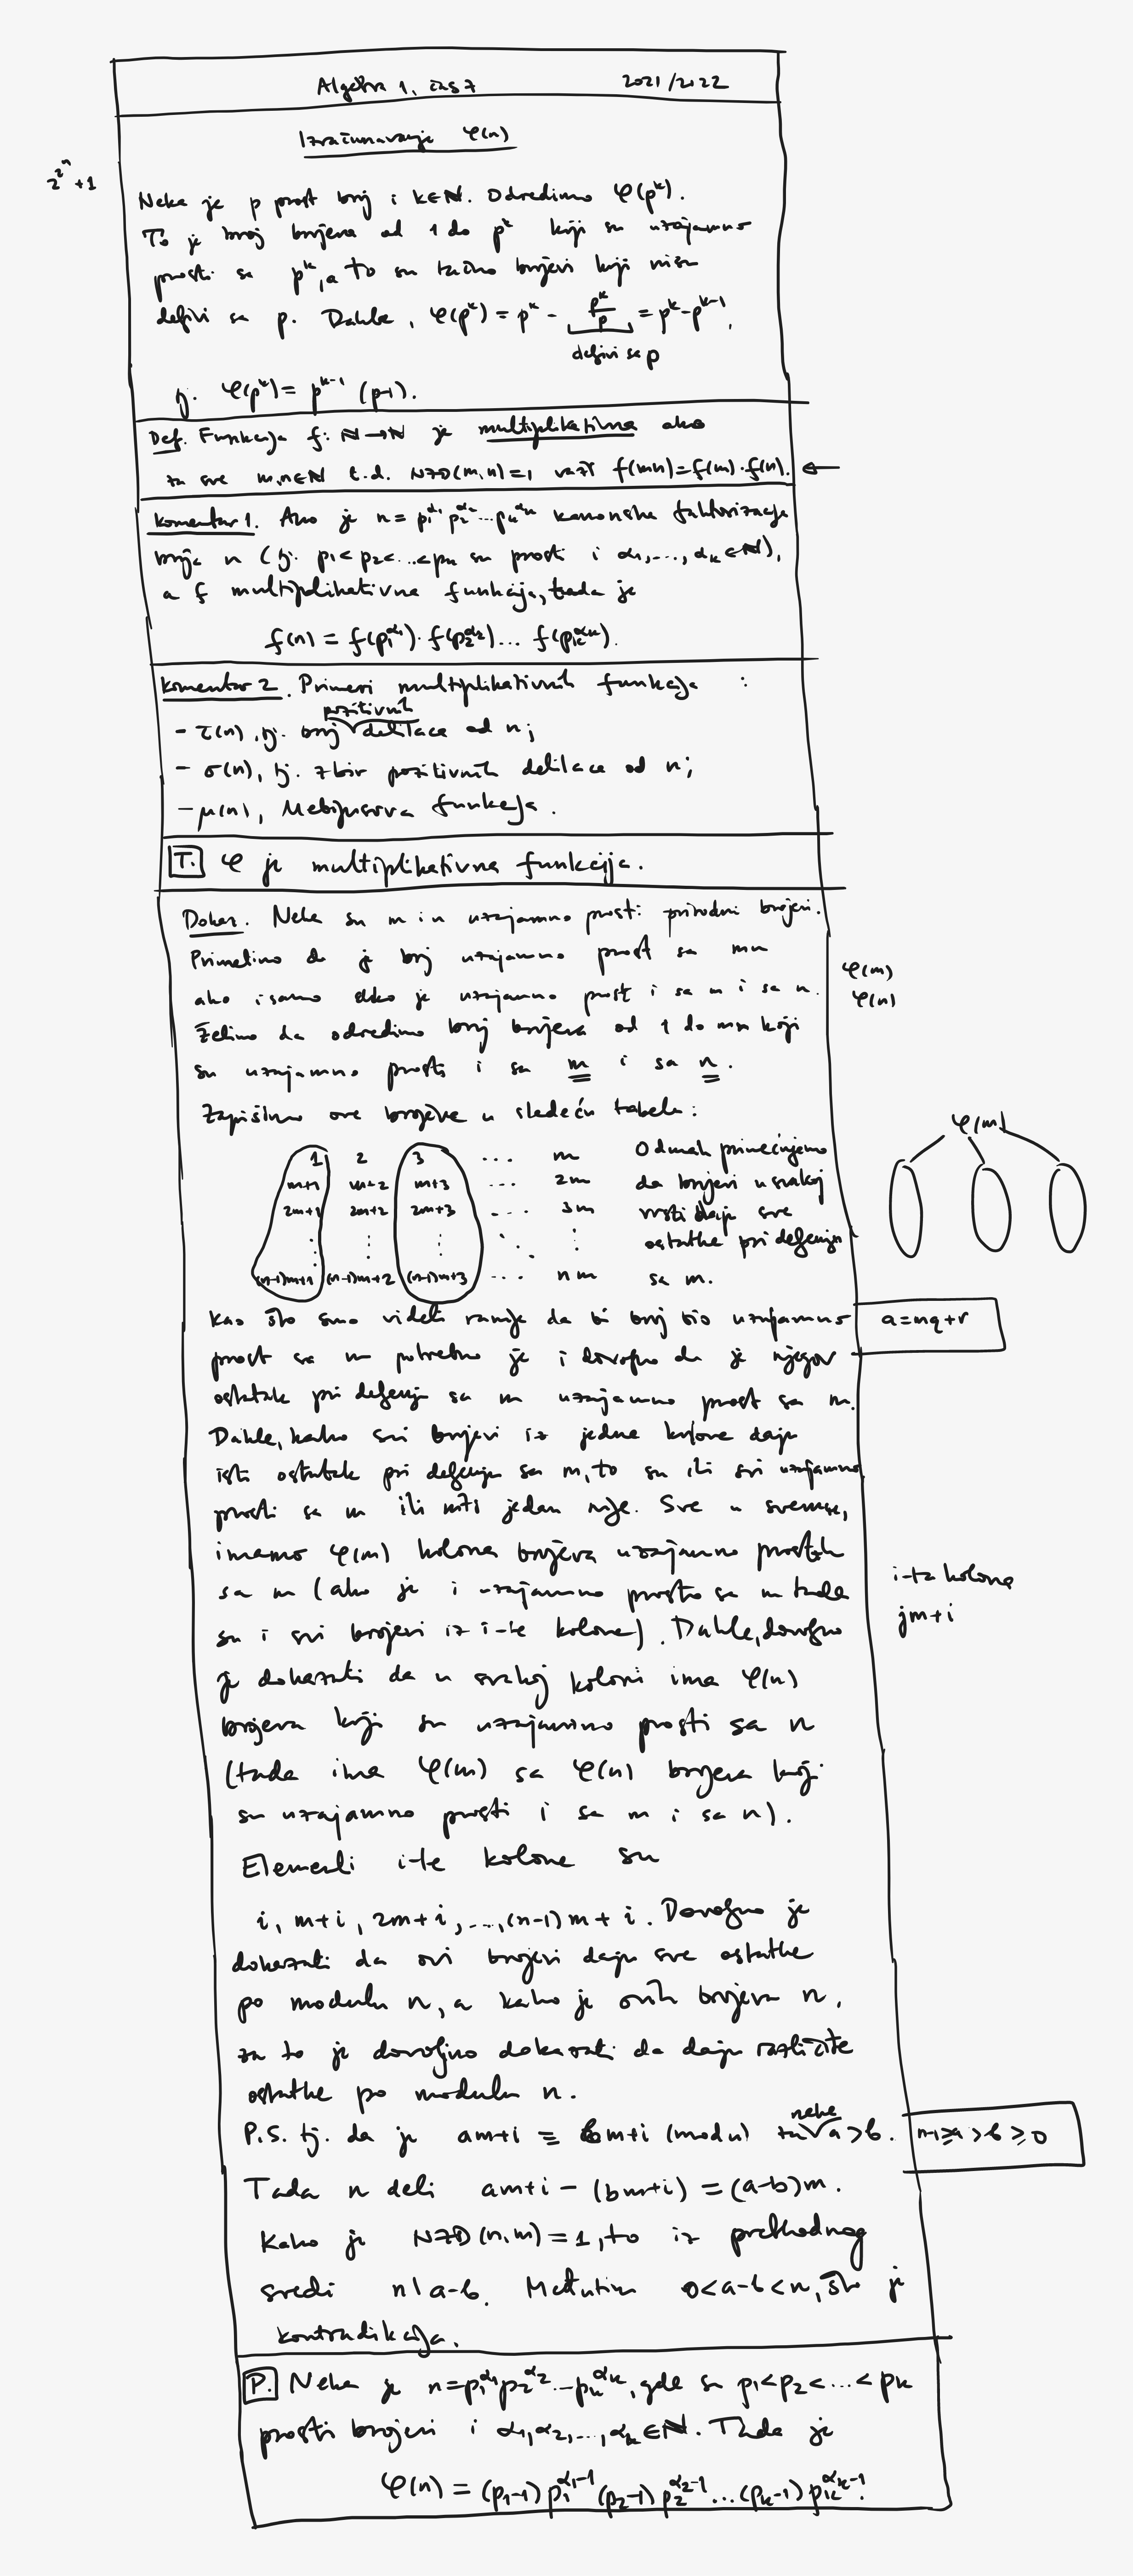 Algebra 1, čas 7 2021/2022
Izračunavanje φ(n)
2^{2^n}+1
Neka je p prost broj i k∈ℕ. Odredimo φ(p^k).
To je broj brojeva od 1 do p^k koji su uzajamno
prosti sa p^k, a to su tačno brojevi koji nisu
deljivi sa p. Dakle, φ(p^k) = p^k - p^k/p = p^k - p^{k-1},
deljivi sa p
tj. φ(p^k) = p^{k-1} (p-1).
Def. Funkcija f: ℕ→ℕ je multiplikativna ako
za sve m,n∈ℕ t.d. NZD(m,n)=1 važi f(mn)=f(m)·f(n). ←
Komentar 1. Ako je n = p_1^{α_1} p_2^{α_2} ... p_k^{α_k} kanonska faktorizacija
broja n (tj. p_1<p_2<...<p_k su prosti i α_1,...,α_k∈ℕ),
a f multiplikativna funkcija, tada je
f(n) = f(p_1^{α_1})·f(p_2^{α_2})... f(p_k^{α_k}).
Komentar 2. Primeri multiplikativnih funkcija :
pozitivnih
- τ(n), tj. broj delilaca od n;
- σ(n), tj. zbir pozitivnih delilaca od n;
- μ(n), Mebijusova funkcija.
T. φ je multiplikativna funkcija.
Dokaz. Neka su m i n uzajamno prosti prirodni brojevi.
Primetimo da je broj uzajamno prost sa mn
φ(m)
ako i samo ako je uzajamno prost i sa m i sa n.
φ(n)
Želimo da odredimo broj brojeva od 1 do mn koji
su uzajamno prosti i sa m i sa n.
Zapišimo ove brojeve u sledeću tabelu:
φ(m)
1 2 3 ... m Odmah primećujemo
m+1 m+2 m+3 ... 2m da brojevi u svakoj
2m+1 2m+2 2m+3 ... 3m vrsti daju sve
⋮ ⋮ ⋮ ⋱ ⋮ ostatke pri deljenju
(n-1)m+1 (n-1)m+2 (n-1)m+3 ... nm sa m.
Kao što smo videli ranije da bi broj bio uzajamno
a=mq+r
prost sa m potrebno je i dovoljno da je njegov
ostatak pri deljenju sa m uzajamno prost sa m.
Dakle, kako svi brojevi iz jedne kolone daju
isti ostatak pri deljenju sa m, to su ili svi uzajamno
prosti sa m ili niti jedan nije. Sve u svemu,
imamo φ(m) kolona brojeva uzajamno prostih
i-ta kolona
sa m (ako je i uzajamno prosto sa m tada
jm+i
su i svi brojevi iz i-te kolone). Dakle, dovoljno
je dokazati da u svakoj koloni ima φ(n)
brojeva koji su uzajamno prosti sa n
(tada ima φ(m) sa φ(n) brojeva koji
su uzajamno prosti i sa m i sa n).
Elementi i-te kolone su
i, m+i, 2m+i, ..., (n-1)m+i. Dovoljno je
dokazati da ovi brojevi daju sve ostatke
po modulu n, a kako je ovih brojeva n,
za to je dovoljno dokazati da daju različite
ostatke po modulu n.
neke
P.S. tj. da je am+i ≡ bm+i (mod n) za a>b.
n-1≥a>b≥0
Tada n deli am+i - (bm+i) = (a-b)m.
Kako je NZD(n,m)=1, to iz prethodnog
sledi n|a-b. Međutim 0<a-b<n, što je
kontradikcija.
P. Neka je n=p_1^{α_1}p_2^{α_2}...p_k^{α_k}, gde su p_1<p_2<...<p_k
prosti brojevi i α_1,α_2,...,α_k∈ℕ. Tada je
φ(n) = (p_1-1)p_1^{α_1-1}(p_2-1)p_2^{α_2-1}...(p_k-1)p_k^{α_k-1}.